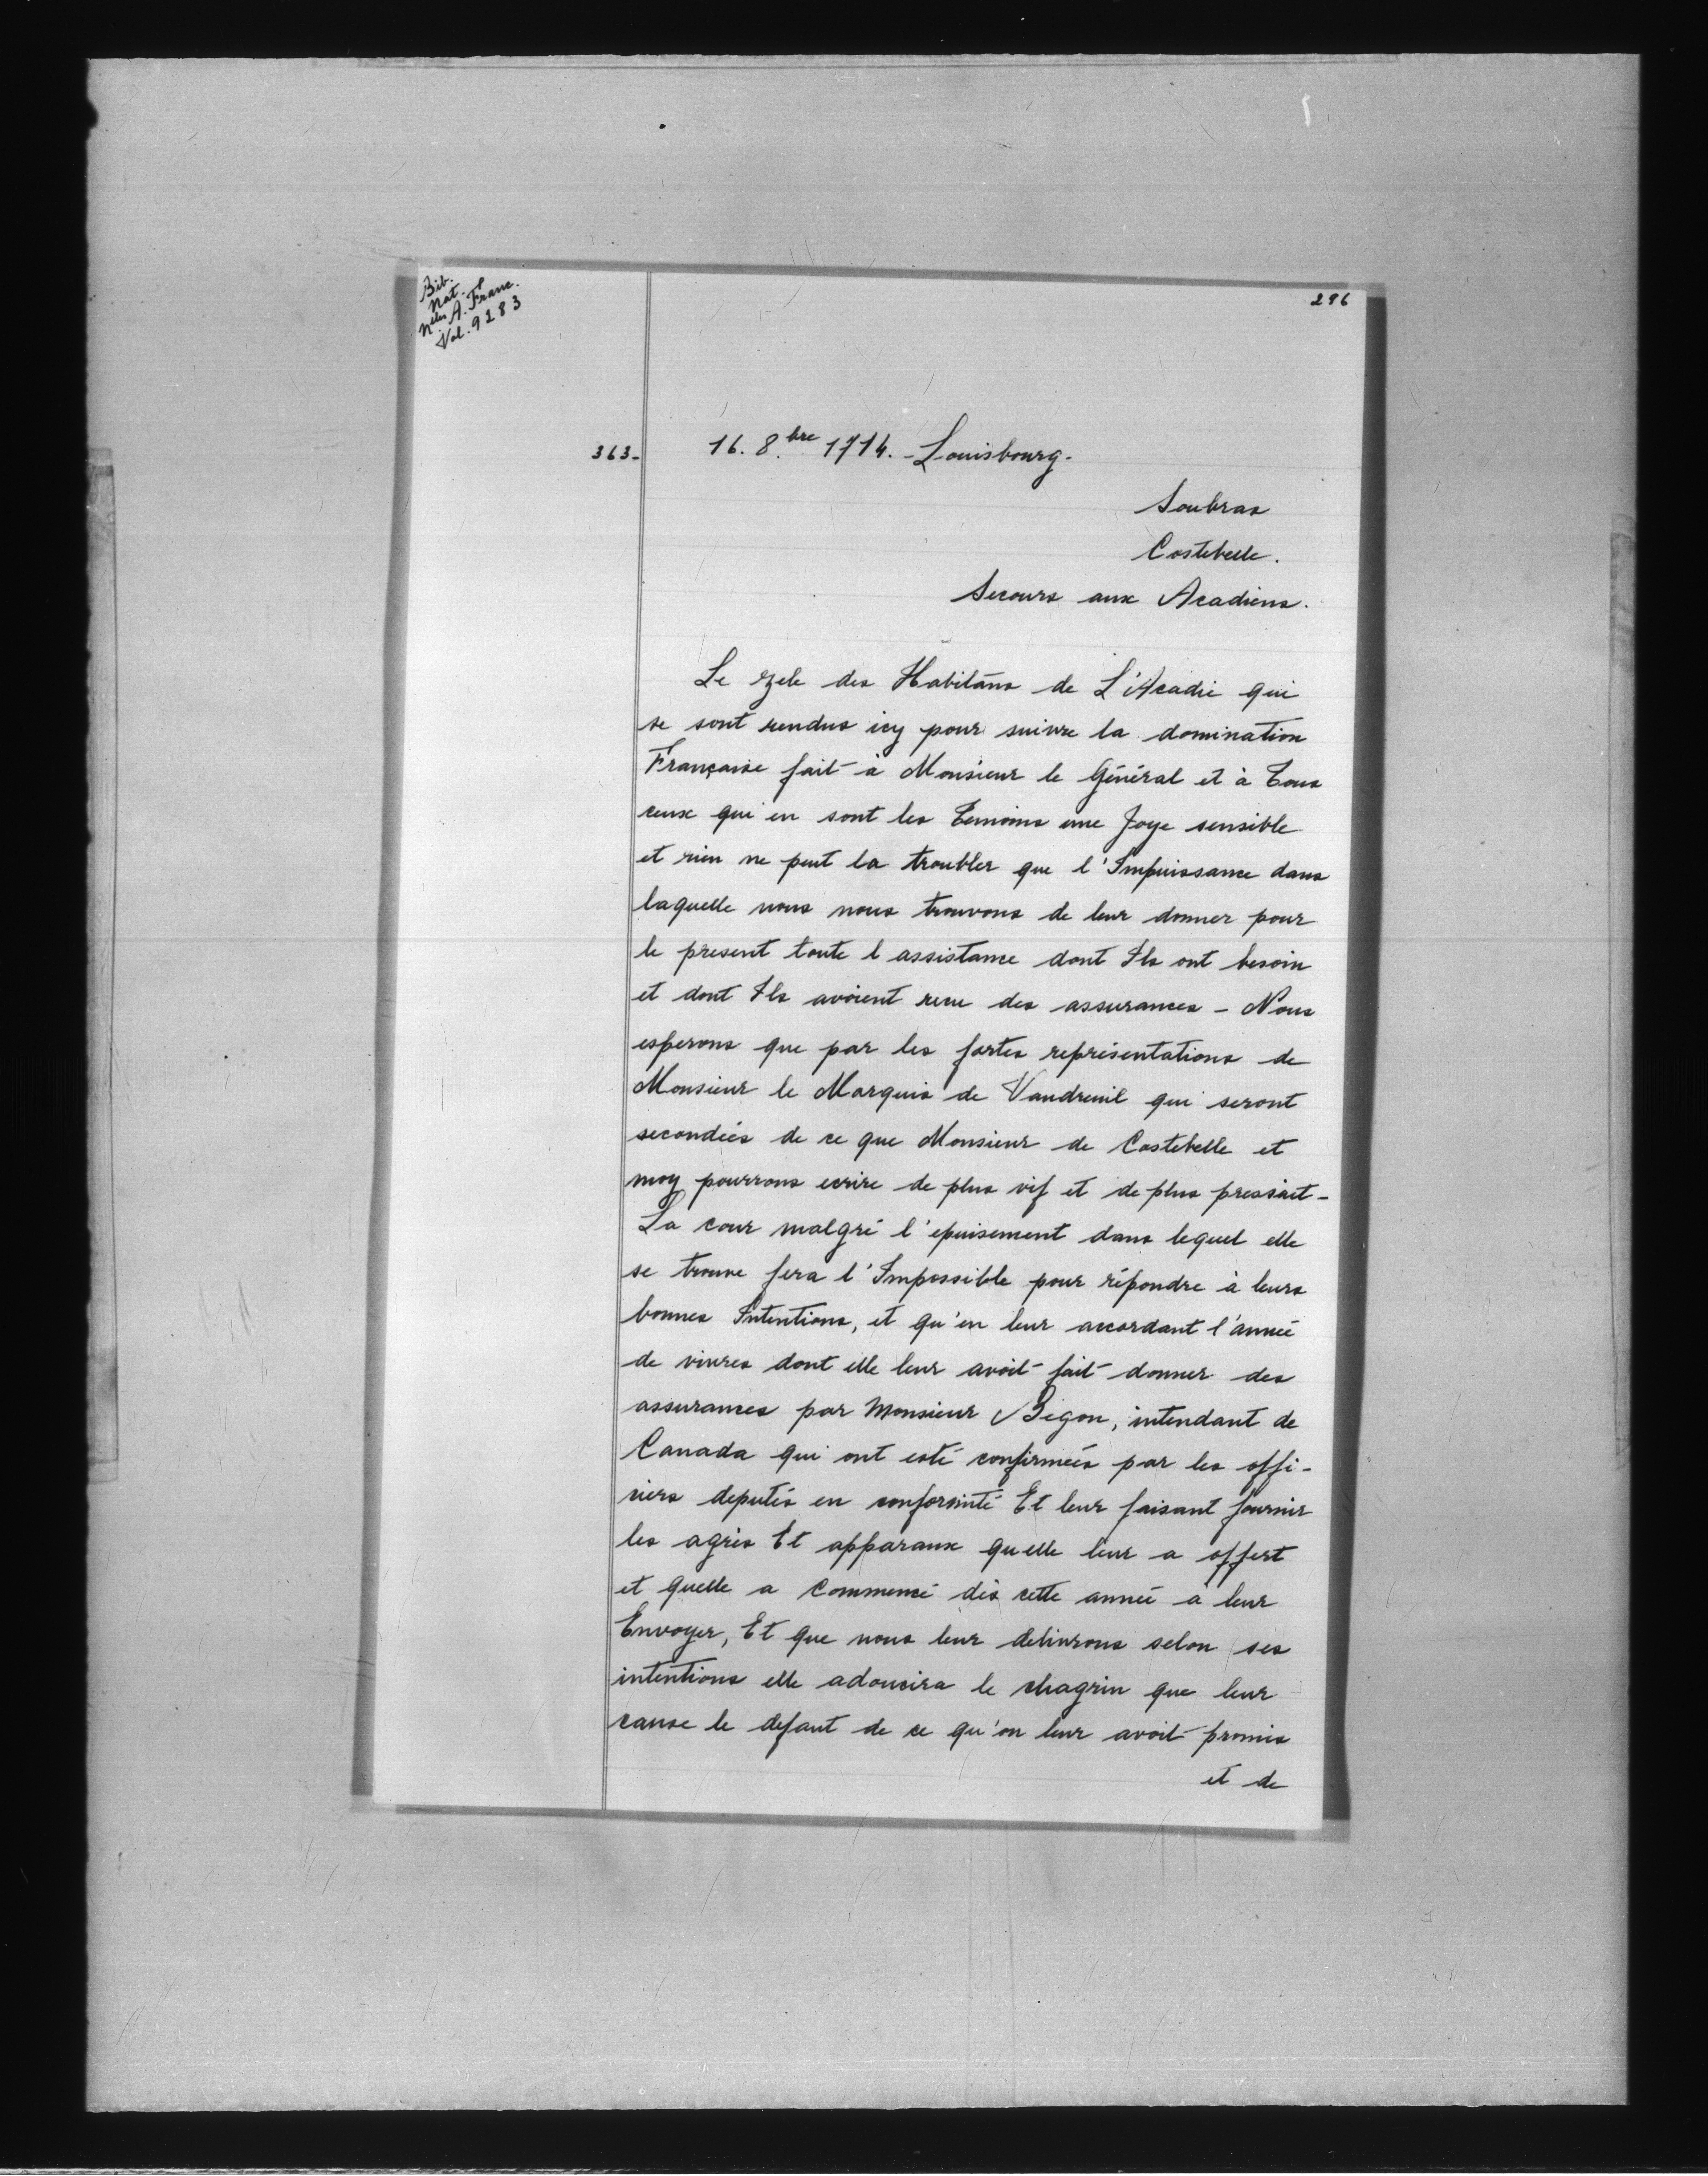 Bib.
Nat.
Nelles A. Franc.
Vol. 9283
296
363-
16. 8.bre 1714. - Louisbourg.
Soubras
Costebelle.
Secours aux Acadiens.
Le zele des Habitãns de L'Acadie qui
se sont rendus icy pour suivre la domination
Française fait à Monsieur le Général et à Tous
ceux qui en sont les Temoins une Joye sensible
et rien ne peut la troubler que l'Impuissance dans
laquelle nous nous trouvons de leur donner pour
le present toute l assistance dont Ils ont besoin
et dont Ils avoient receu des assurances - Nous
esperons que par les fortes représentations de
Monsieur le Marquis de Vaudreuil qui seront
secondées de ce que Monsieur de Costebelle et
moy pourrons ecrire de plus vif et de plus pressait -
La cour malgré l'epuisement dans lequel elle
se trouve fera l'Impossible pour répondre à leurs
bonnes Intentions, et qu'en leur accordant l'année
de vivres dont elle leur avoit fait donner des
assurances par Monsieur Begon, intendant de
Canada qui ont esté confirmées par les offi-
ciers deputés en conformité Et leur faisant fournir
les agrès Et apparaux quelle leur a offert
et quelle a Commencé dès cette année à leur
Envoyer, Et que nous leur delivrons selon ses
intentions elle adoucira le chagrin que leur
cause le defaut de ce qu'on leur avoit promis
et de